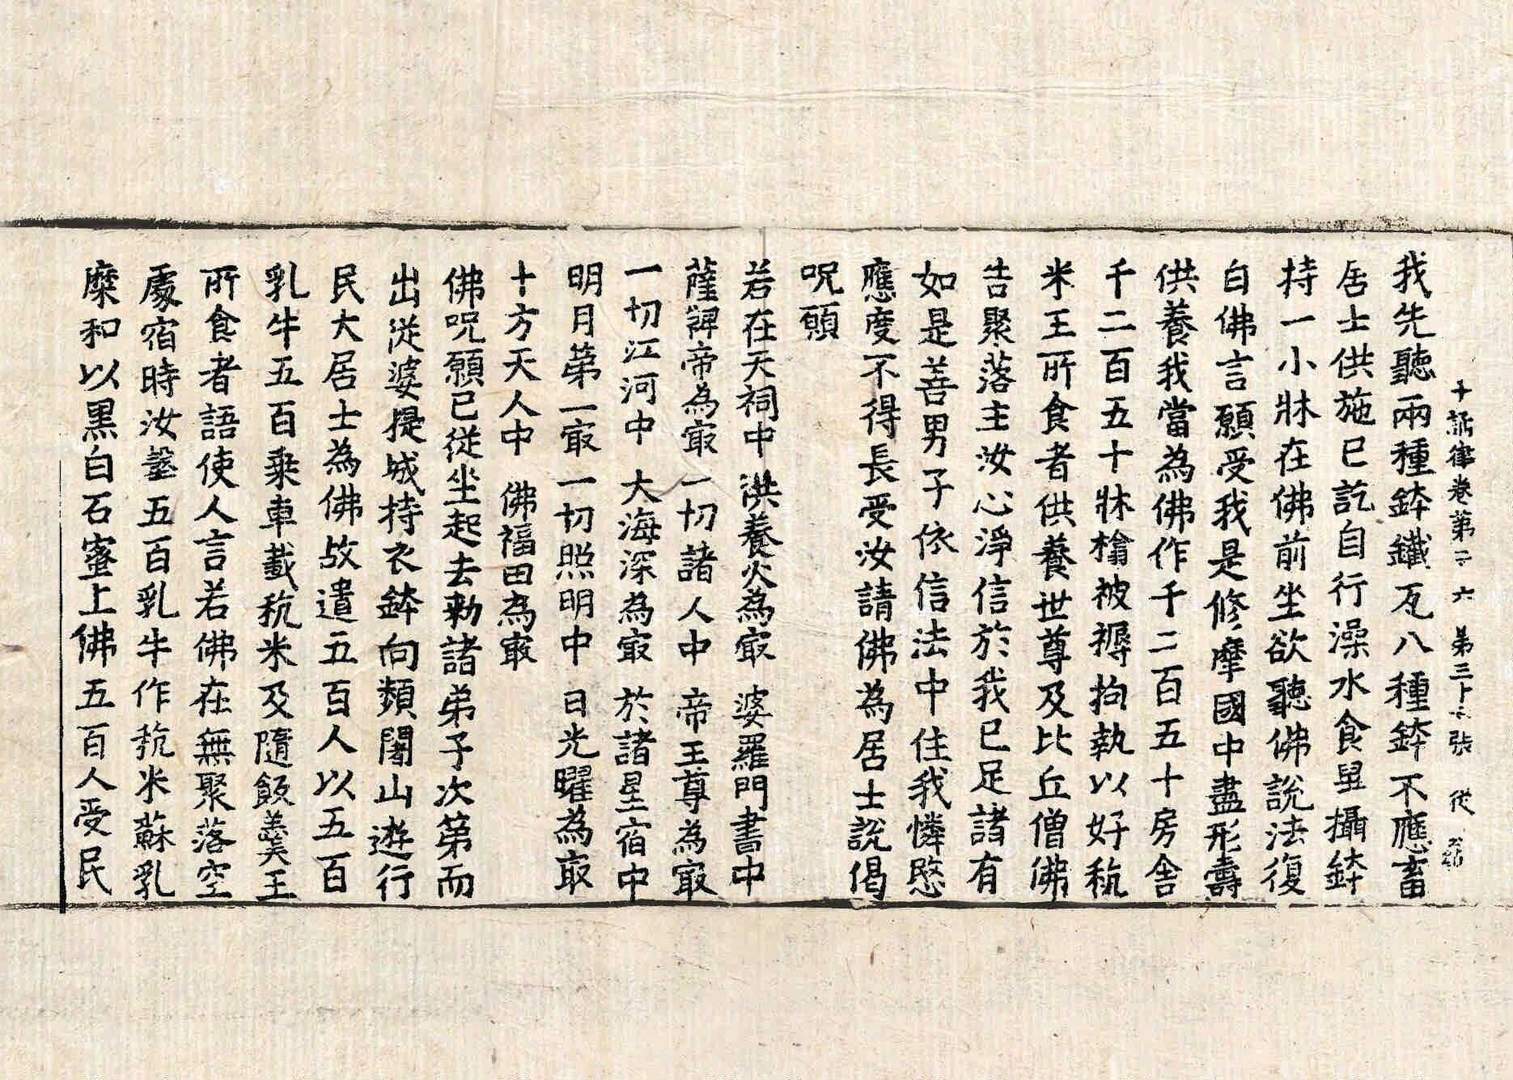 十誦律卷第二六 第三十六張 從
我先聽兩種鉢鐵瓦八種鉢不應畜
居士供施已訖自行澡水食畢攝鉢
持一小牀在佛前坐欲聽佛說法復
白佛言願受我是修摩國中盡形壽
供養我當為佛作千二百五十房舍
千二百五十牀橣被褥拘執以好秔
米王所食者供養世尊及比丘僧佛
告聚落主汝心淨信於我已足諸有
如是善男子依信法中住我憐愍
應度不得長受汝請佛為居士說偈
呪願
若在天祠中 洪養火為㝡 婆羅門書中
薩鞞帝為㝡 一切諸人中 帝王尊為㝡
一切江河中 大海深為㝡 於諸星宿中
明月第一㝡 一切照明中 日光曜為㝡
十方天人中 佛福田為㝡
佛呪願已從坐起去勑諸弟子次第而
出從婆提城持衣鉢向頻闍山遊行
民大居士為佛故遣五百人以五百
乳牛五百乘車載秔米及隨飯羹王
所食者語使人言若佛在無聚落空
處宿時汝䥯五百乳牛作秔米蘇乳
糜和以黑白石蜜上佛五百人受民